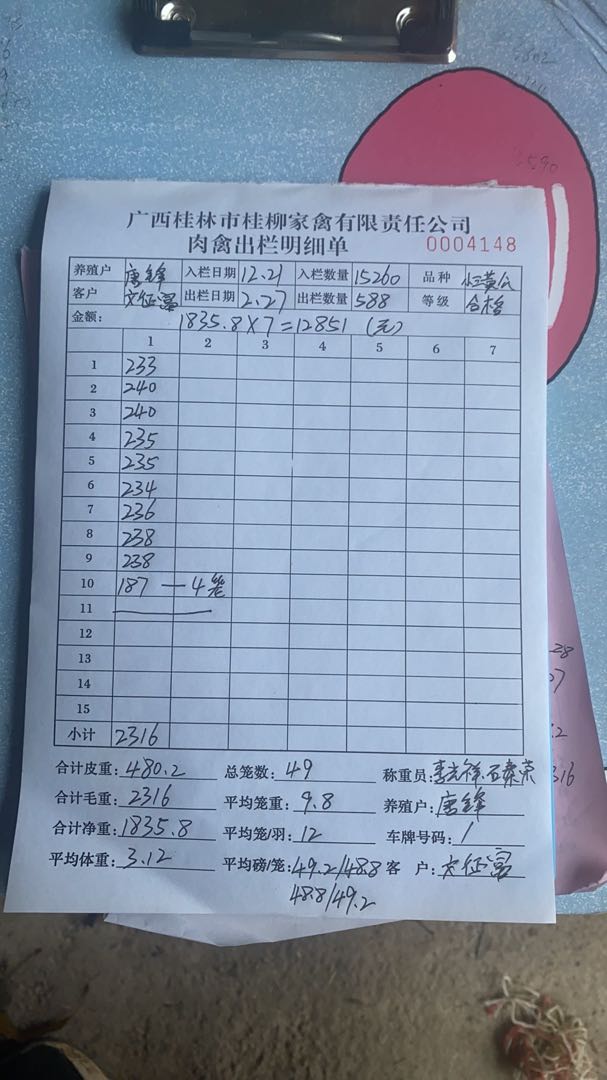 广西桂林市桂柳家禽有限责任公司
肉禽出栏明细单 0004148
养殖户 唐锋 入栏日期 12.21 入栏数量 15260 品种 小三黄公
客户 文征富 出栏日期 2.27 出栏数量 588 等级 合格
金额: 1835.8×7=12851 (元)
1 2 3 4 5 6 7
1 233
2 240
3 240
4 235
5 235
6 234
7 236
8 238
9 238
10 187 — 4笼
11
12
13
14
15
小计 2316
合计皮重: 480.2 总笼数: 49 称重员: 李
合计毛重: 2316 平均笼重: 9.8 养殖户: 唐锋
合计净重: 1835.8 平均笼/羽: 12 车牌号码: /
平均体重: 3.12 平均磅/笼: 49.2/48.8 客 户: 文征富
48.8/49.2